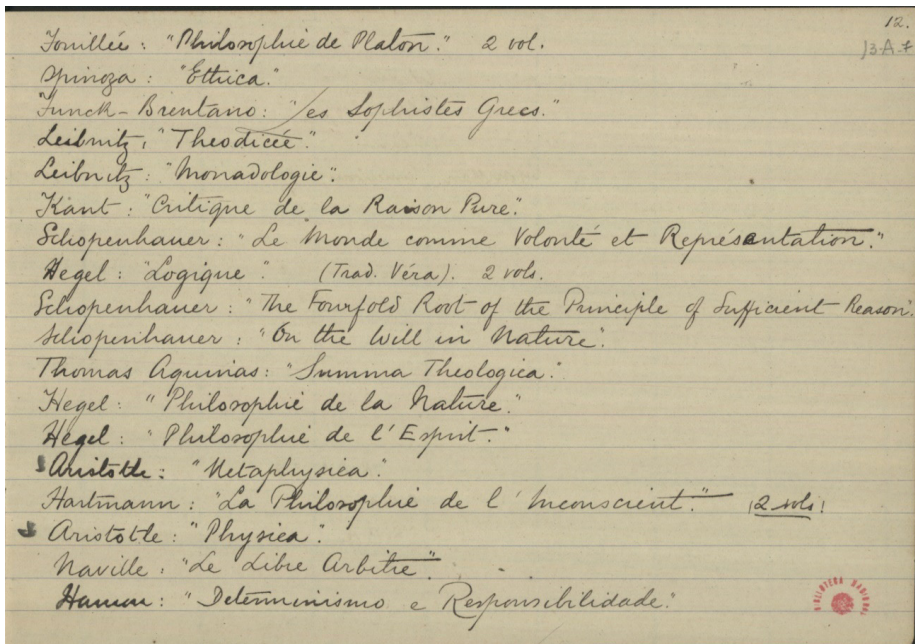 12.
13-A-7
Fouillée: "Philosophie de Platon." 2 vol.
Spinoza: "Ethica."
Funck-Brentano: "Les Sophistes Grecs."
Leibnitz, "Theodicée".
Leibnitz: "Monadologie".
Kant: "Critique de la Raison Pure".
Schopenhauer: "Le Monde comme Volonté et Représentation."
Hegel: "Logique". (Trad. Véra). 2 vols.
Schopenhauer: "The Fourfold Root of the Principle of Sufficient Reason".
Schopenhauer: "On the Will in Nature".
Thomas Aquinas: "Summa Theologica."
Hegel: "Philosophie de la Nature."
Hegel: "Philosophie de l'Esprit."
Aristotle: "Metaphysica".
Hartmann: "La Philosophie de l'Inconscient." (2 vols)
Aristotle: "Physica".
Naville: "Le Libre Arbitre".
Hamon: "Determinismo e Responsibilidade."
BIBLIOTECA NACIONAL